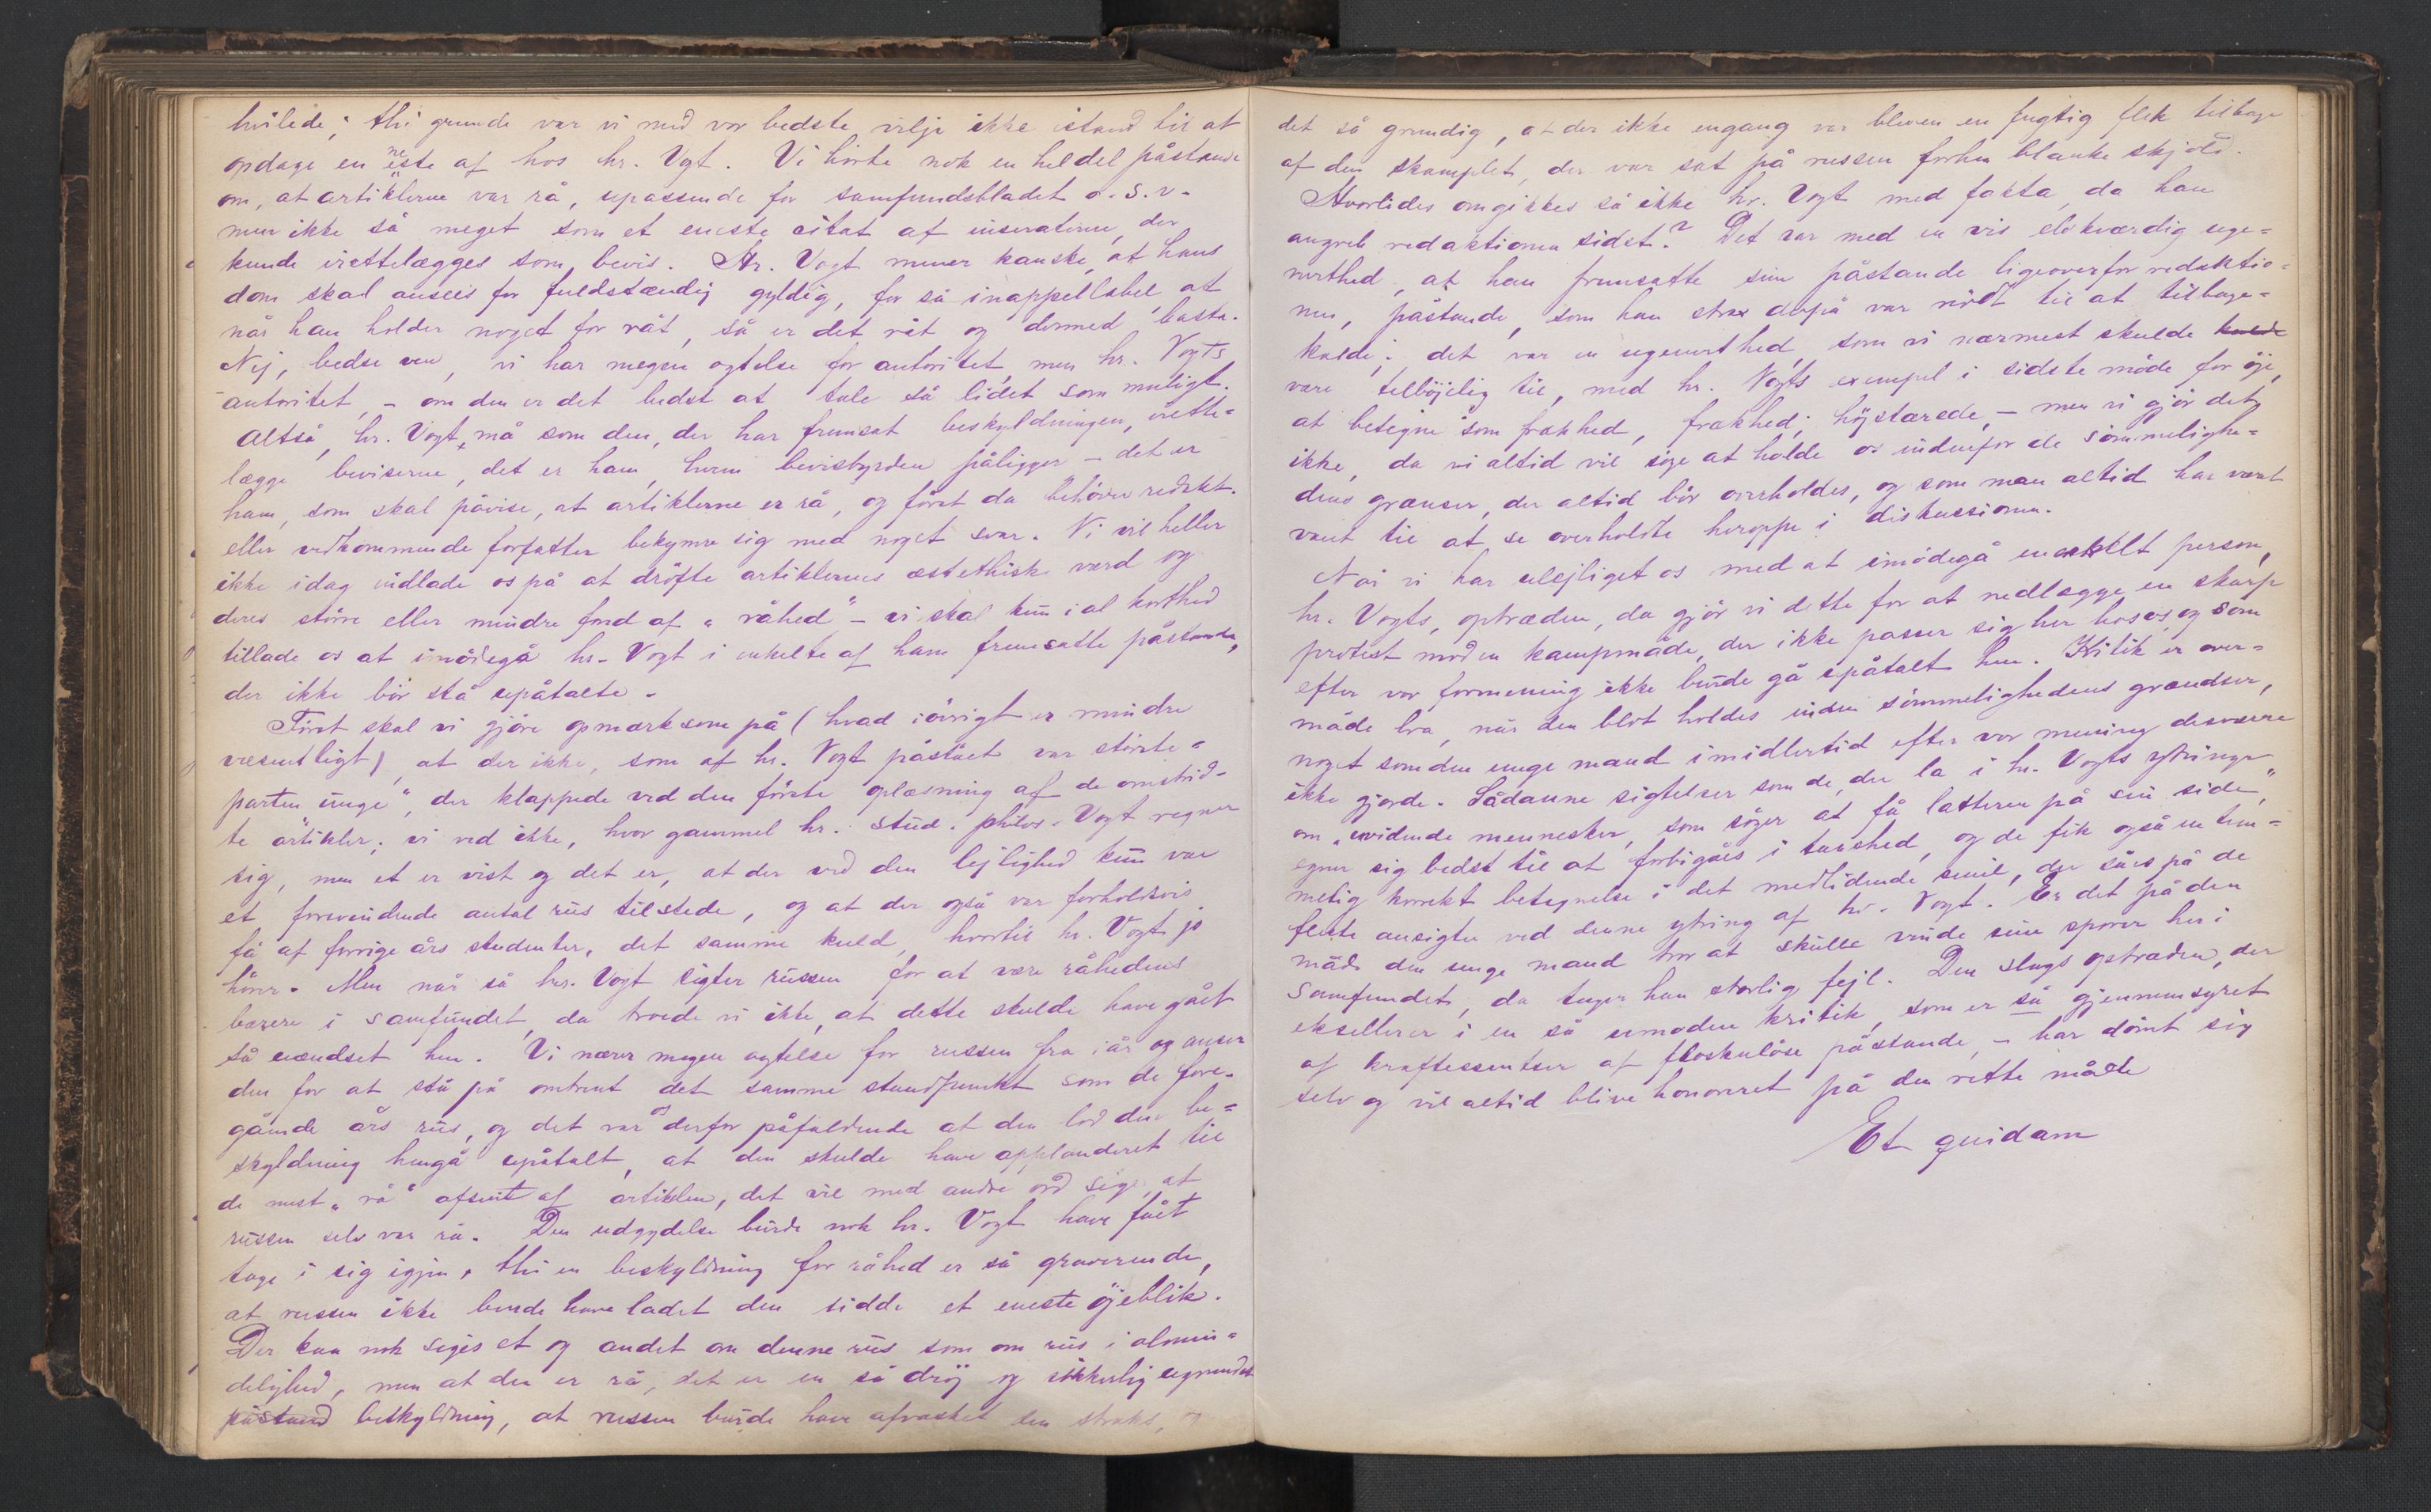 hvilede; thi grunde var vi med vor bedste vilje ikke istand til at
opdage en eneste af hos hr. Vogt. Vi hørte nok en heldel påstande
om, at artiklerne var rå, upassende for samfundsbladet o. s. v.
men ikke så meget som et eneste citat af inseraterne, der
kunde irettelægges som bevis. Hr. Vogt mener kanske, at hans
dom skal ansees for fuldstændig gyldig, for så inappellabel, at
når han holder noget for råt, så er det råt og dermed basta.
Nej, bedste ven, vi har megen agtelse for autoritet, men hr. Vogts
autoritet, – om den er det bedst at tale så lidet som muligt.
Altså, hr. Vogt, må som den, der har fremsat beskyldningen, irette=
lægge beviserne, det er ham, hvem bevisbyrden påligger – det er
ham, som skal påvise, at artiklerne er rå, og først da behøver redakt.
eller vedkommende forfatter bekymre sig med noget svar. Vi vil heller
ikke idag indlade os på at drøfte artiklernes æsthetiske værd og
deres større eller mindre fond af "råhed" – vi skal kun i al korthed
tillade os at imødegå hr. Vogt i enkelte af ham fremsatte påstande,
der ikke bør stå upåtalte.
Først skal vi gjøre opmærksom på (hvad iøvrigt er mindre
væsentligt), at der ikke, som af hr. Vogt påstået var større=
parten unge", der klappede ved den første oplæsning af de omstrid-
te artikler; vi ved ikke, hvor gammel hr. stud. philos. Vogt regner
sig, men et er vist og det er, at der ved den lejlighed kun var
et forsvindende antal rus tilstede, og at der også var forholdsvis
få af forrige års studenter, det samme kuld, hvortil hr. Vogt jo
hører. Men når så hr. Vogt sigter russen for at være råhedens
bærere i samfundet, da troede vi ikke, at dette skulde have gået
så uændset hen. Vi nærer megen agtelse for russen fra iår og anser
den for at stå på omtrent det samme standpunkt som de fore-
gående års rus, og det var os derfor påfaldende at den lod den be=
skyldning hengå upåtalt, at den skulde have applauderet til
de mest "rå" afsnit af artiklen, det vil med andre ord sige, at
russen selv var rå. Den udgydelse burde nok hr. Vogt have fået
tage i sig igjen, thi en beskyldning for råhed er så graverende,
at russen ikke burde have ladet den sidde et eneste øjeblik.
Der kan nok siges et og andet om denne rus som om rus i almin=
delighed, men at den er rå, det er en så drøj og sikkerlig ugrundet
påstand beskyldning, at russen burde have afvasket den straks, og
det så grundig, at der ikke engang var bleven en fugtig flek tilbage
af den skamplet, der var sat på russens forhen blanke skjold.
Hvorledes omgikkes så ikke hr. Vogt med fakta, da han
angreb redaktionen sidst? Det var med en vis elskværdig uge=
nerthed, at han fremsatte sine påstande ligeoverfor redaktio=
nen, påstande, som han strax derpå var nødt til at tilbage=
kalde; det var en ugenerthed, som vi nærmest skulde kalde
være tilbøjelig til, med hr. Vogts exempel i sidste møde for øje,
at betegne som frækhed, frækhed, højstærede, – men vi gjør det
ikke, da vi altid vil søge at holde os indenfor de sømmelighe=
dens grænser, der altid bør overholdes, og som man altid har været
vant til at se overholdte heroppe i diskussionen.
Når vi har uleiliget os med at imødegå en enkelt person,
hr. Vogts, optræden, da gjør vi dette for at nedlægge en skarp
protest mod en kampmåde, der ikke passer sig her hos os, og som
efter vor formening ikke burde gå upåtalt hen. Kritik er over=
måde bra, når den blot holdes inden sømmelighedens grændser,
noget som den unge mand imidlertid efter vor mening desværre
ikke gjorde. Sådanne sigtelser som de, der la i hr. Vogts ytringer
om "uvidende mennesker, som søger at få latteren på sin side",
egner sig bedst til at forbigåes i taushed, og de fik også en tem=
melig korrekt betegnelse i det medlidende smil, der såes på de
fleste ansigter ved denne ytring af hr. Vogt. Er det på den
måde den unge mand tror at skulle vinde sine sporer her i
Samfundet, da tager han storlig fejl. Den slags optræden, der
ekscellerer i en så umoden kritik, som er så gjennemsyret
af kraftessentser af floskuløse påstande, – har dømt sig
selv og vil altid blive honoreret på den rette måde
Et quidam